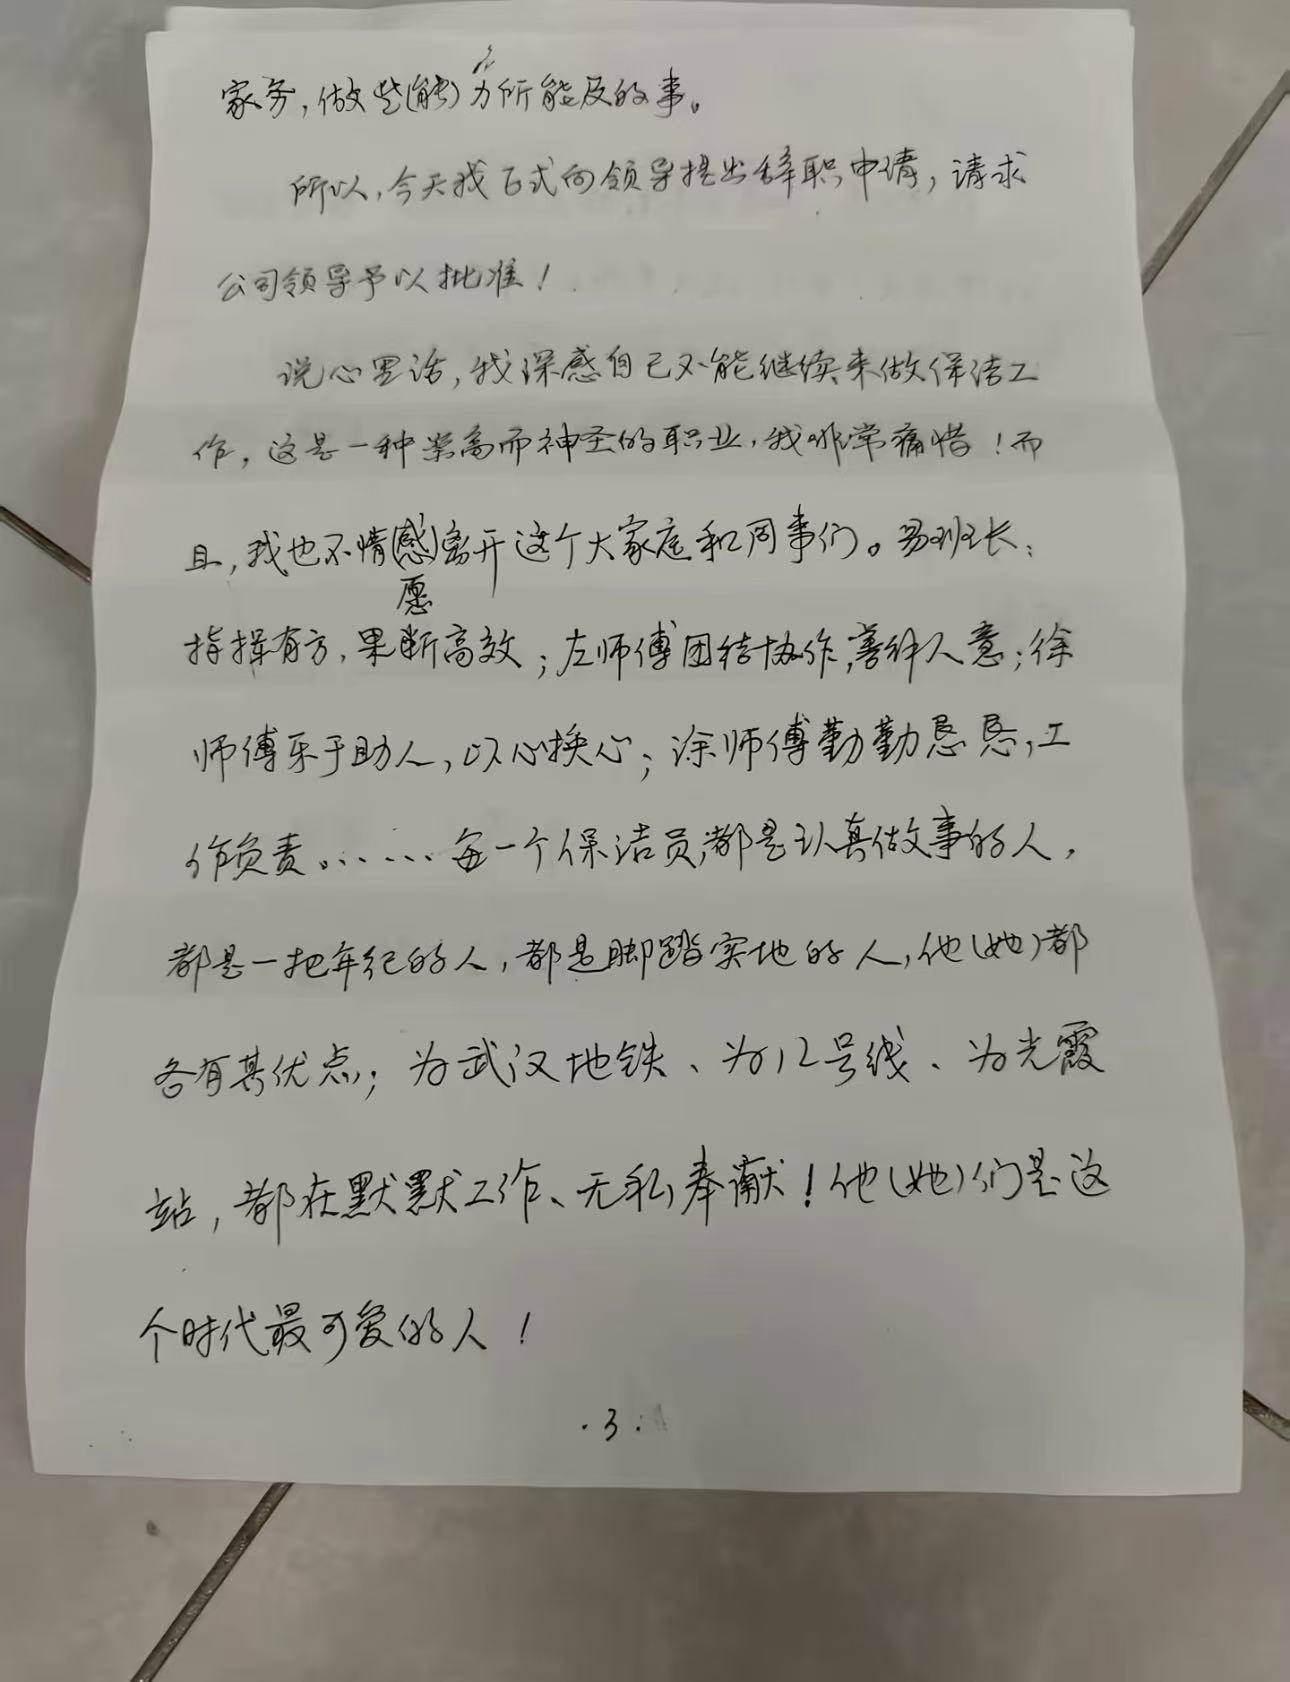 家务，做些(能)力所能及的事。
所以，今天我正式向领导提出辞职申请，请求
公司领导予以批准！
说心里话，我深感自己不能继续来做保洁工
作，这是一种崇高而神圣的职业，我非常痛惜！而
且，我也不情(感)离开这个大家庭和同事们。易班长：
愿
指挥有方，果断高效；左师傅团结协作，善解人意；徐
师傅乐于助人，以心换心；涂师傅勤勤恳恳，工
作负责。……每一个保洁员，都是认真做事的人，
都是一把年纪的人，都是脚踏实地的人，他(她)都
各有其优点；为武汉地铁、为12号线、为光霞
站，都在默默工作、无私奉献！他(她)们是这
个时代最可爱的人！
·3·